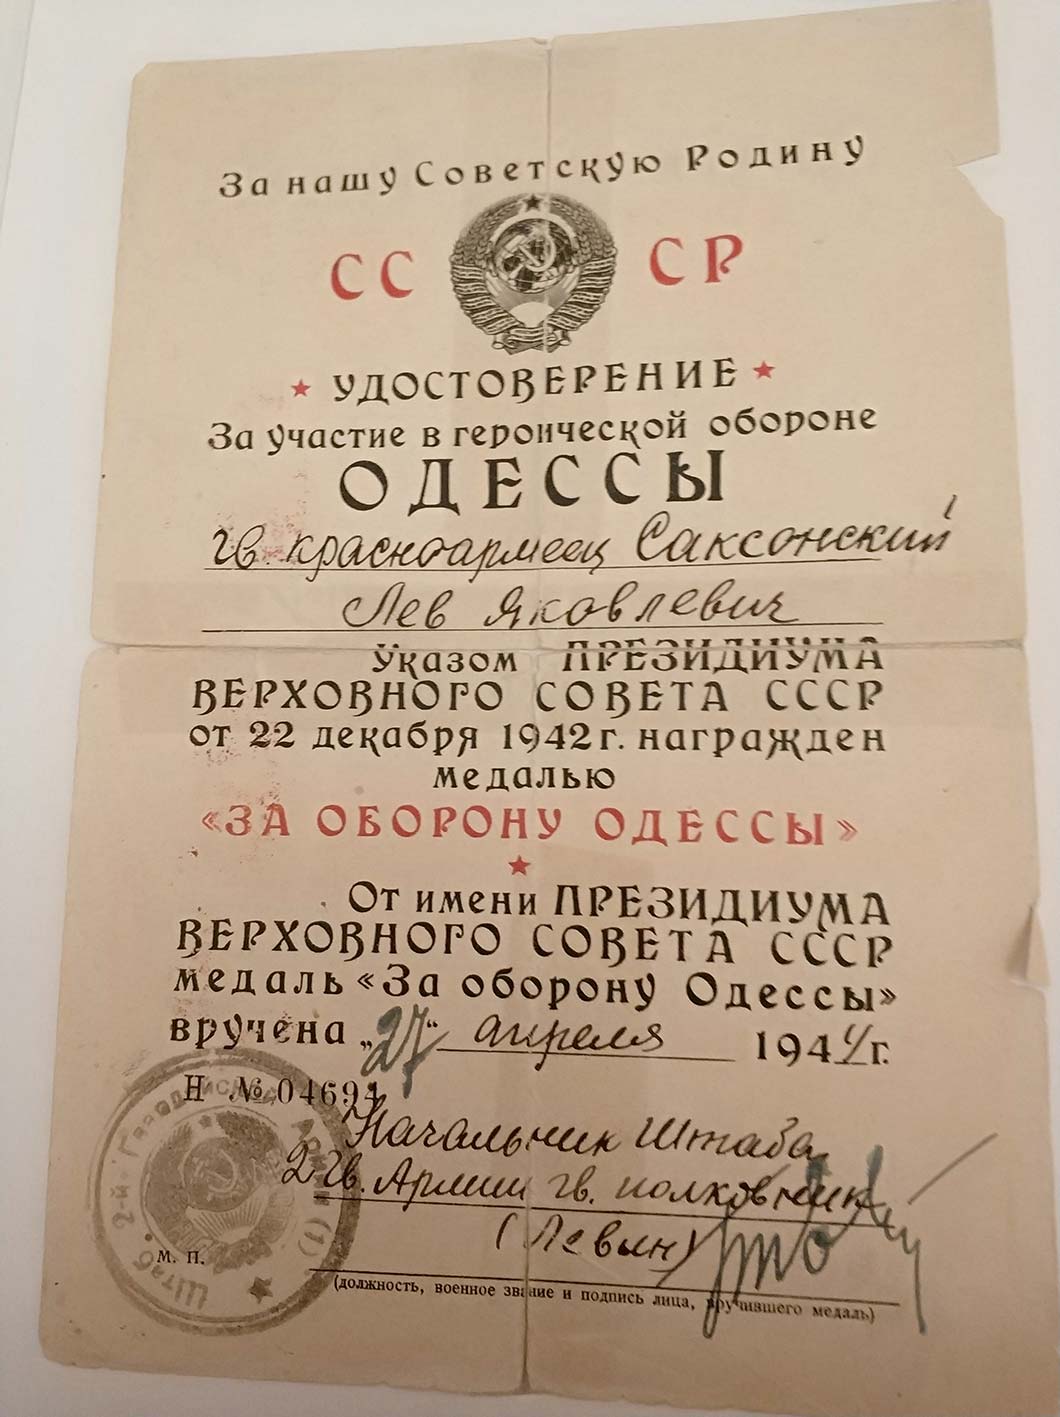 За нашу Советскую Родину
СС СР
УДОСТОВЕРЕНИЕ
За участие в героической обороне
ОДЕССЫ
гв. красноармеец Саксонский
Лев Яковлевич
Указом ПРЕЗИДИУМА
ВЕРХОВНОГО СОВЕТА СССР
от 22 декабря 1942 г. награжден
медалью
«ЗА ОБОРОНУ ОДЕССЫ»
От имени ПРЕЗИДИУМА
ВЕРХОВНОГО СОВЕТА СССР
медаль «За оборону Одессы»
вручена „27“ апреля 1944 г.
Н № 04694
Начальник Штаба
2 Гв. Армии гв. полковник
(Левин)
М. П.
(должность, военное звание и подпись лица, вручившего медаль)
Штаб 2-й Гвардейской Армии (1)